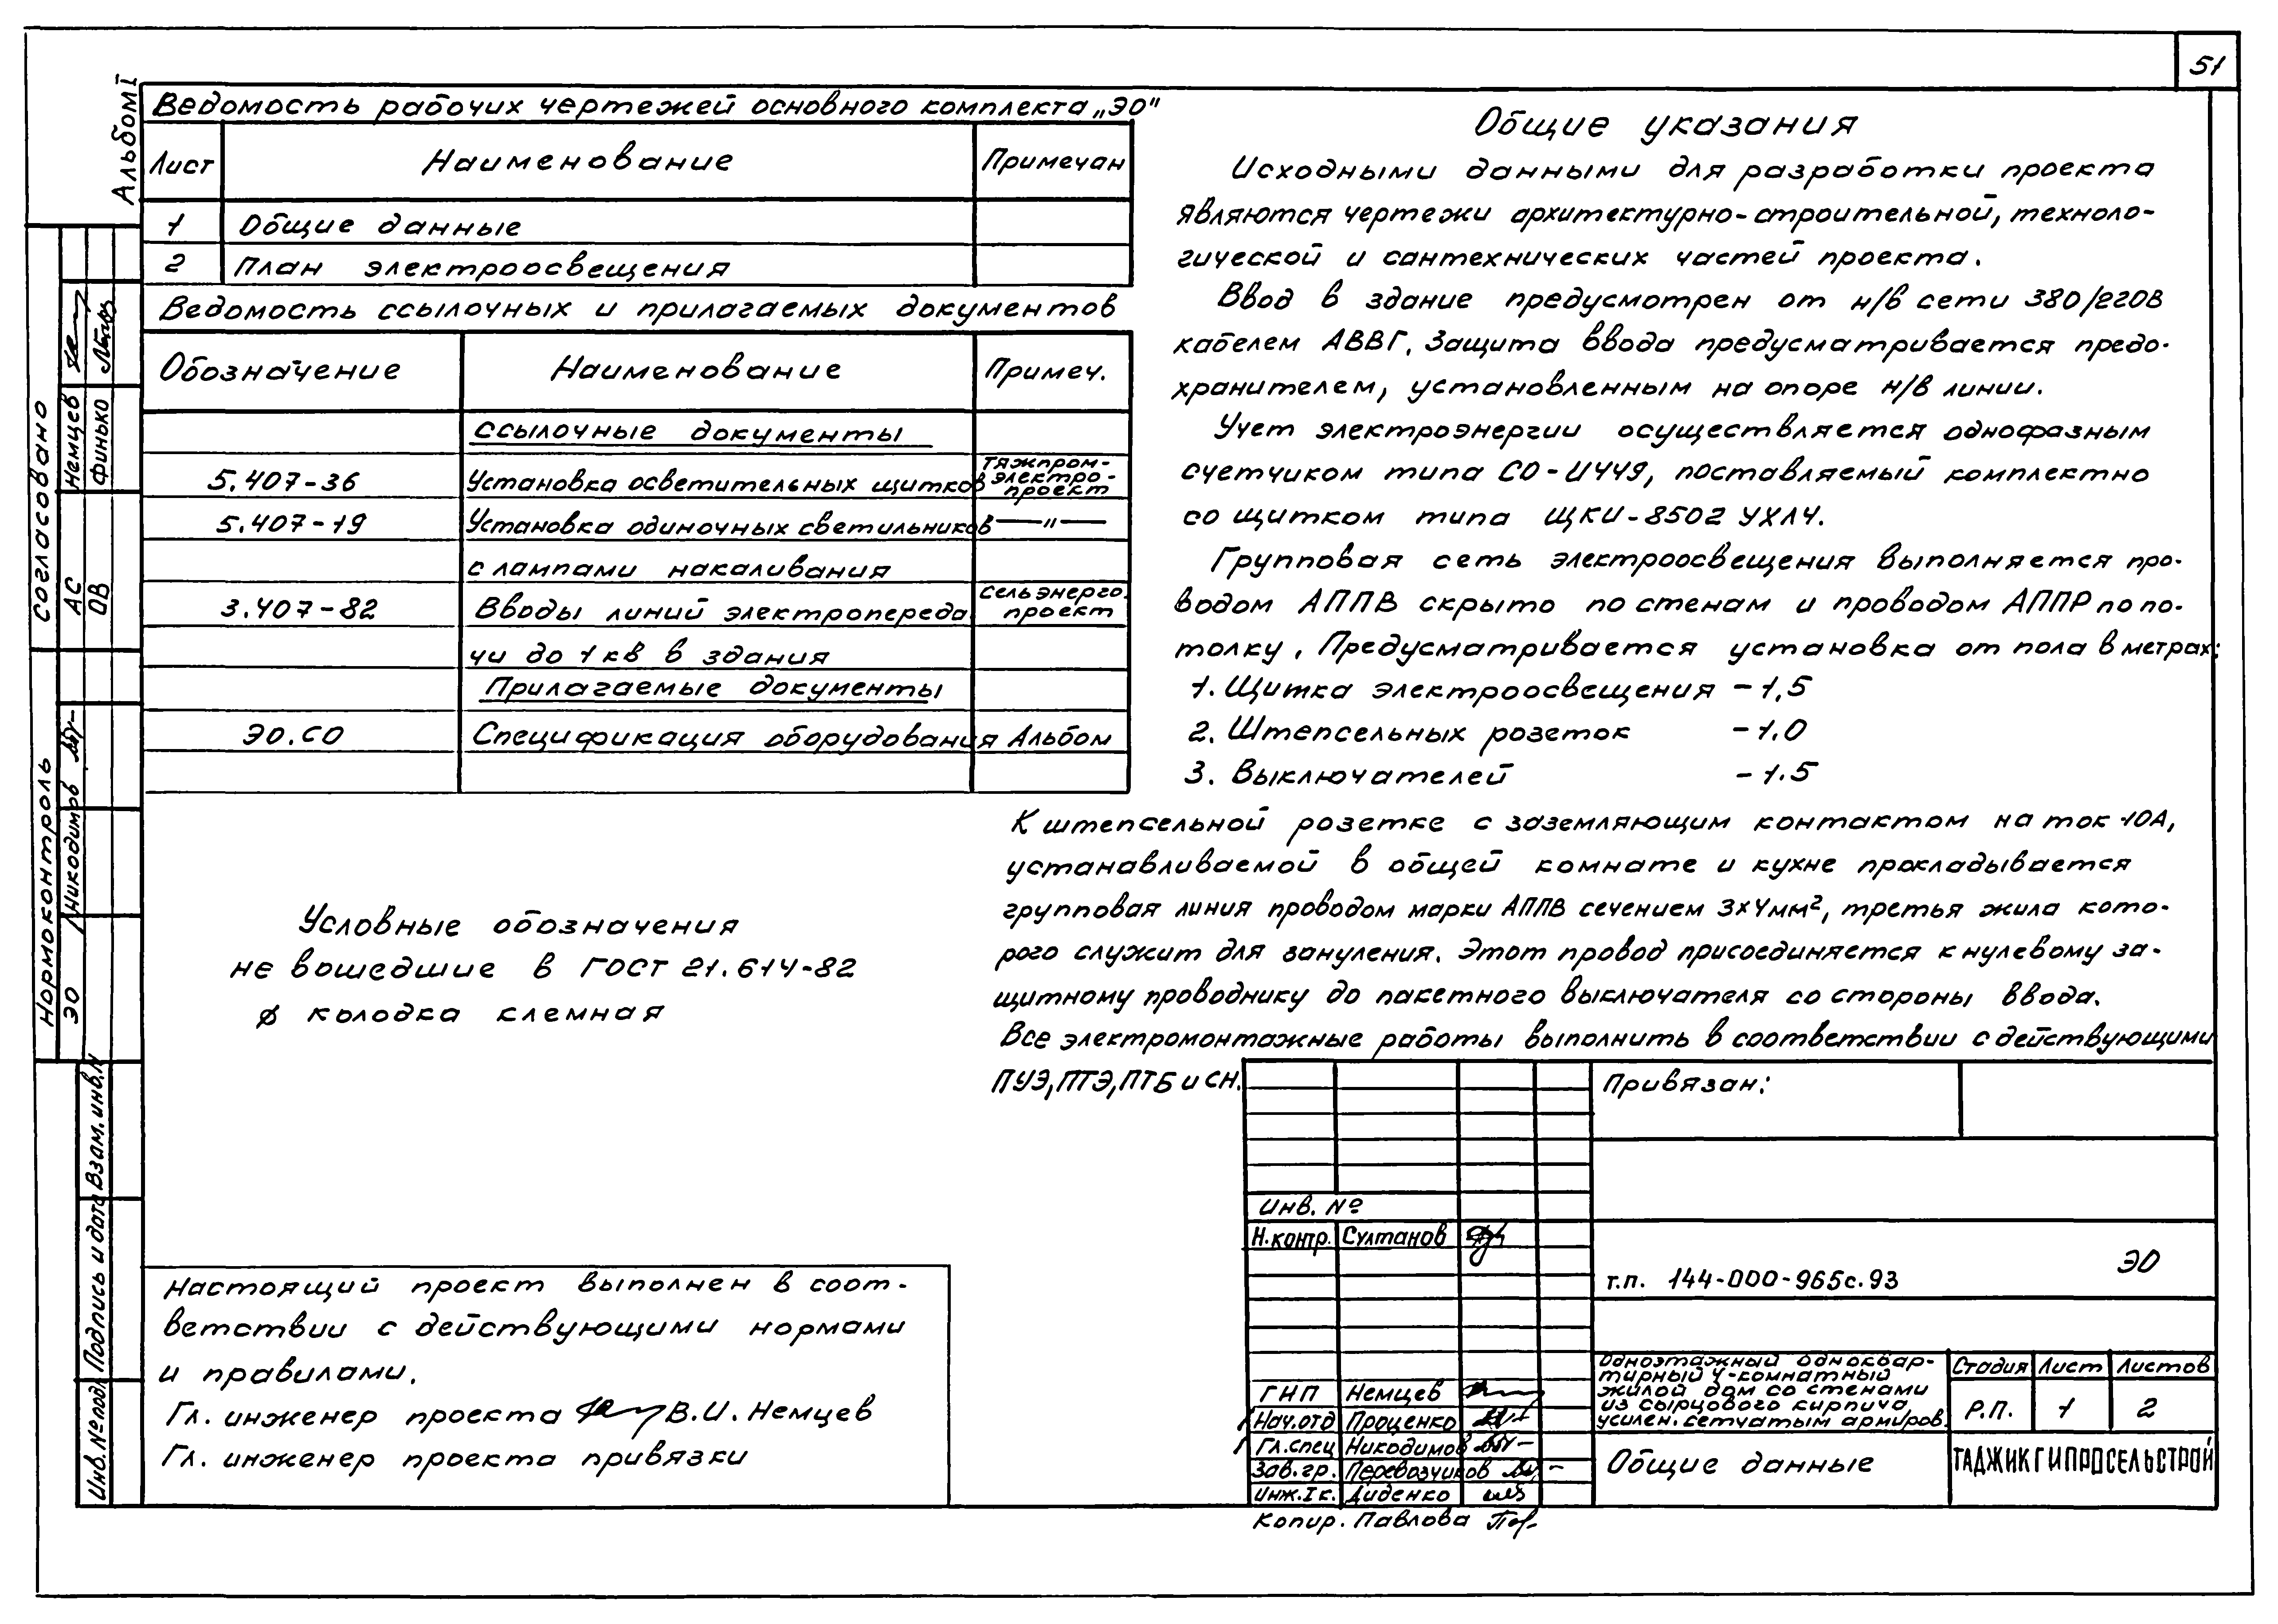 51
Альбом I
Ведомость рабочих чертежей основного комплекта „ЭО"
Лист Наименование Примечан
1 Общие данные
2 План электроосвещения
Ведомость ссылочных и прилагаемых документов
Обозначение Наименование Примеч.
ссылочные документы
5.407-36 Установка осветительных щитков тяжпром-
электро-
проект
5.407-19 Установка одиночных светильников —"—
с лампами накаливания
3.407-82 Вводы линий электропереда сельэнерго.
проект
чи до 1 кв в здания
Прилагаемые документы
ЭО.СО Спецификация оборудования Альбом
Условные обозначения
не вошедшие в ГОСТ 21.614-82
ø колодка клемная
Настоящий проект выполнен в соот-
ветствии с действующими нормами
и правилами.
Гл. инженер проекта В.И. Немцев
Гл. инженер проекта привязки
Общие указания
Исходными данными для разработки проекта
являются чертежи архитектурно-строительной, техноло-
гической и сантехнических частей проекта.
Ввод в здание предусмотрен от н/в сети 380/220В
кабелем АВВГ. Защита ввода предусматривается предо-
хранителем, установленным на опоре н/в линии.
Учет электроэнергии осуществляется однофазным
счетчиком типа СО-И449, поставляемый комплектно
со щитком типа ЩКИ-8502 УХЛ4.
Групповая сеть электроосвещения выполняется про-
водом АППВ скрыто по стенам и проводом АППР по по-
толку. Предусматривается установка от пола в метрах:
1. Щитка электроосвещения - 1,5
2. Штепсельных розеток - 1.0
3. Выключателей - 1.5
К штепсельной розетке с заземляющим контактом на ток 10А,
устанавливаемой в общей комнате и кухне прокладывается
групповая линия проводом марки АППВ сечением 3х4мм², третья жила кото-
рого служит для зануления. Этот провод присоединяется к нулевому за-
щитному проводнику до пакетного выключателя со стороны ввода.
Все электромонтажные работы выполнить в соответствии с действующими
ПУЭ, ПТЭ, ПТБ и СН.
Привязан:
Инв. №
Н.контр. Султанов
т.п. 144-000-965с.93 ЭО
ГНП Немцев
Нач.отд Проценко
Гл.спец Никодимов
Зав.гр. Перевозчиков
Инж.Iк. Диденко
Одноэтажный однокварм-
тирный 4-комнатный
жилой дом со стенами
из сырцового кирпича
усилен. сетчатым армиров.
Стадия Лист Листов
Р.П. 1 2
Общие данные
ТАДЖИКГИПРОСЕЛЬСТРОЙ
Копир. Павлова
Согласовано
АС Немцев
ОВ Финько
Нормоконтроль
ЭО Никодимов
Взам. инв.N
Подпись и дата
Инв. № подл